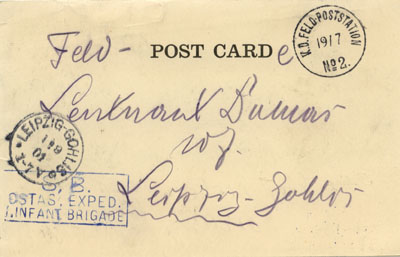 Feld- POST CARDe
K.D. FELD-POSTSTATION
19/7
No 2.
Leutnant Dumas
LEIPZIG-GOHLIS
10
S. B.
OSTAS. EXPED.
INFANT BRIGADE
Leipzig-Gohlis